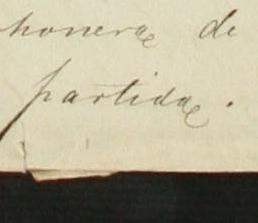 honera de
partida.